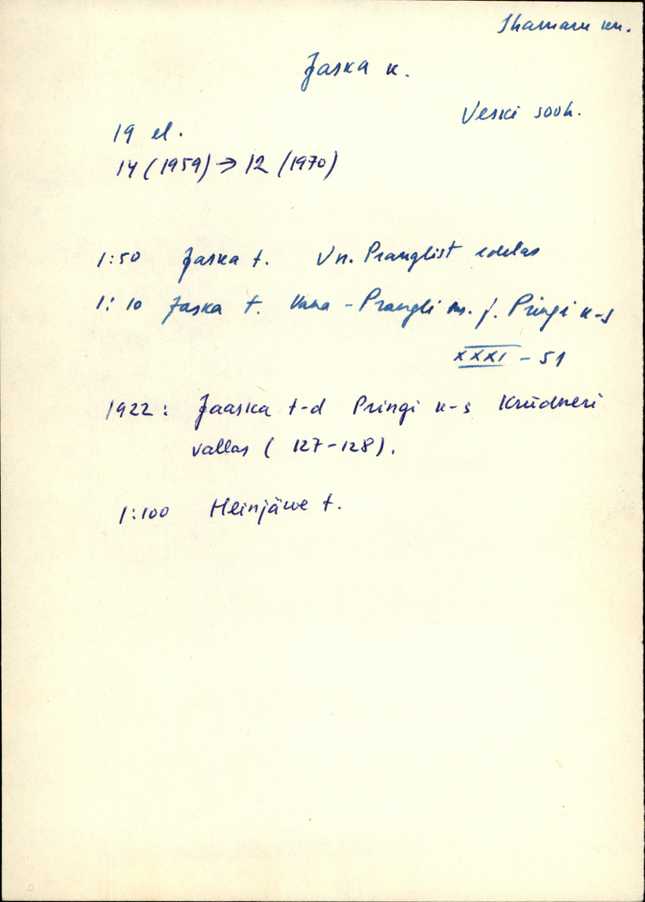 Ihamaru kn.
Jaska k.
Veski sovh.
19 el.
14 (1959) → 12 (1970)
1:50 Jaska t. Vn. Pranglist edelas
1:10 Jaska t. Vana-Prangli m. j. Pringi k-s
XXXI - 51
1922: Jaaska t-d Pringi k-s Krüdneri
vallas (127-128).
1:100 Heinjäwe t.